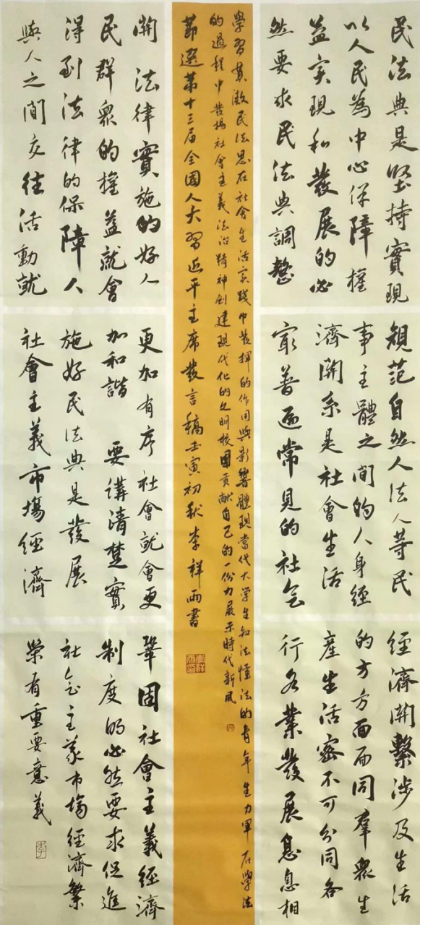 民法典是堅持實現
以人民為中心保障權
益实現和發展的必
然要求民法典調整
規范自然人法人等民
事主體之間的人身經
濟関系是社會生活
冣普遍常見的社会
經濟関繫涉及生活
的方方面面同羣衆生
產生活密不可分同各
行各業發展息息相
関法律實施的好人
民群衆的權益就會
得到法律的保障人
與人之間交往活動就
更加有序社會就會更
加和諧 要講清楚實
施好民法典是發展
社會主義市場經濟
鞏固社會主義經濟
制度的必然要求促進
社会主義市場經濟繁
榮有重要意義
學習貫徹民法思在社會生活实踐中發揮的作用與影響體現當代大學生知法懂法的青年生力軍 在學法
的過程中發揚社會主義法治精神创建現代化的文明校園贡献自己的一份力展示時代新風
節選第十三届全國人大習近平主席發言稿壬寅初秋李祥雨書